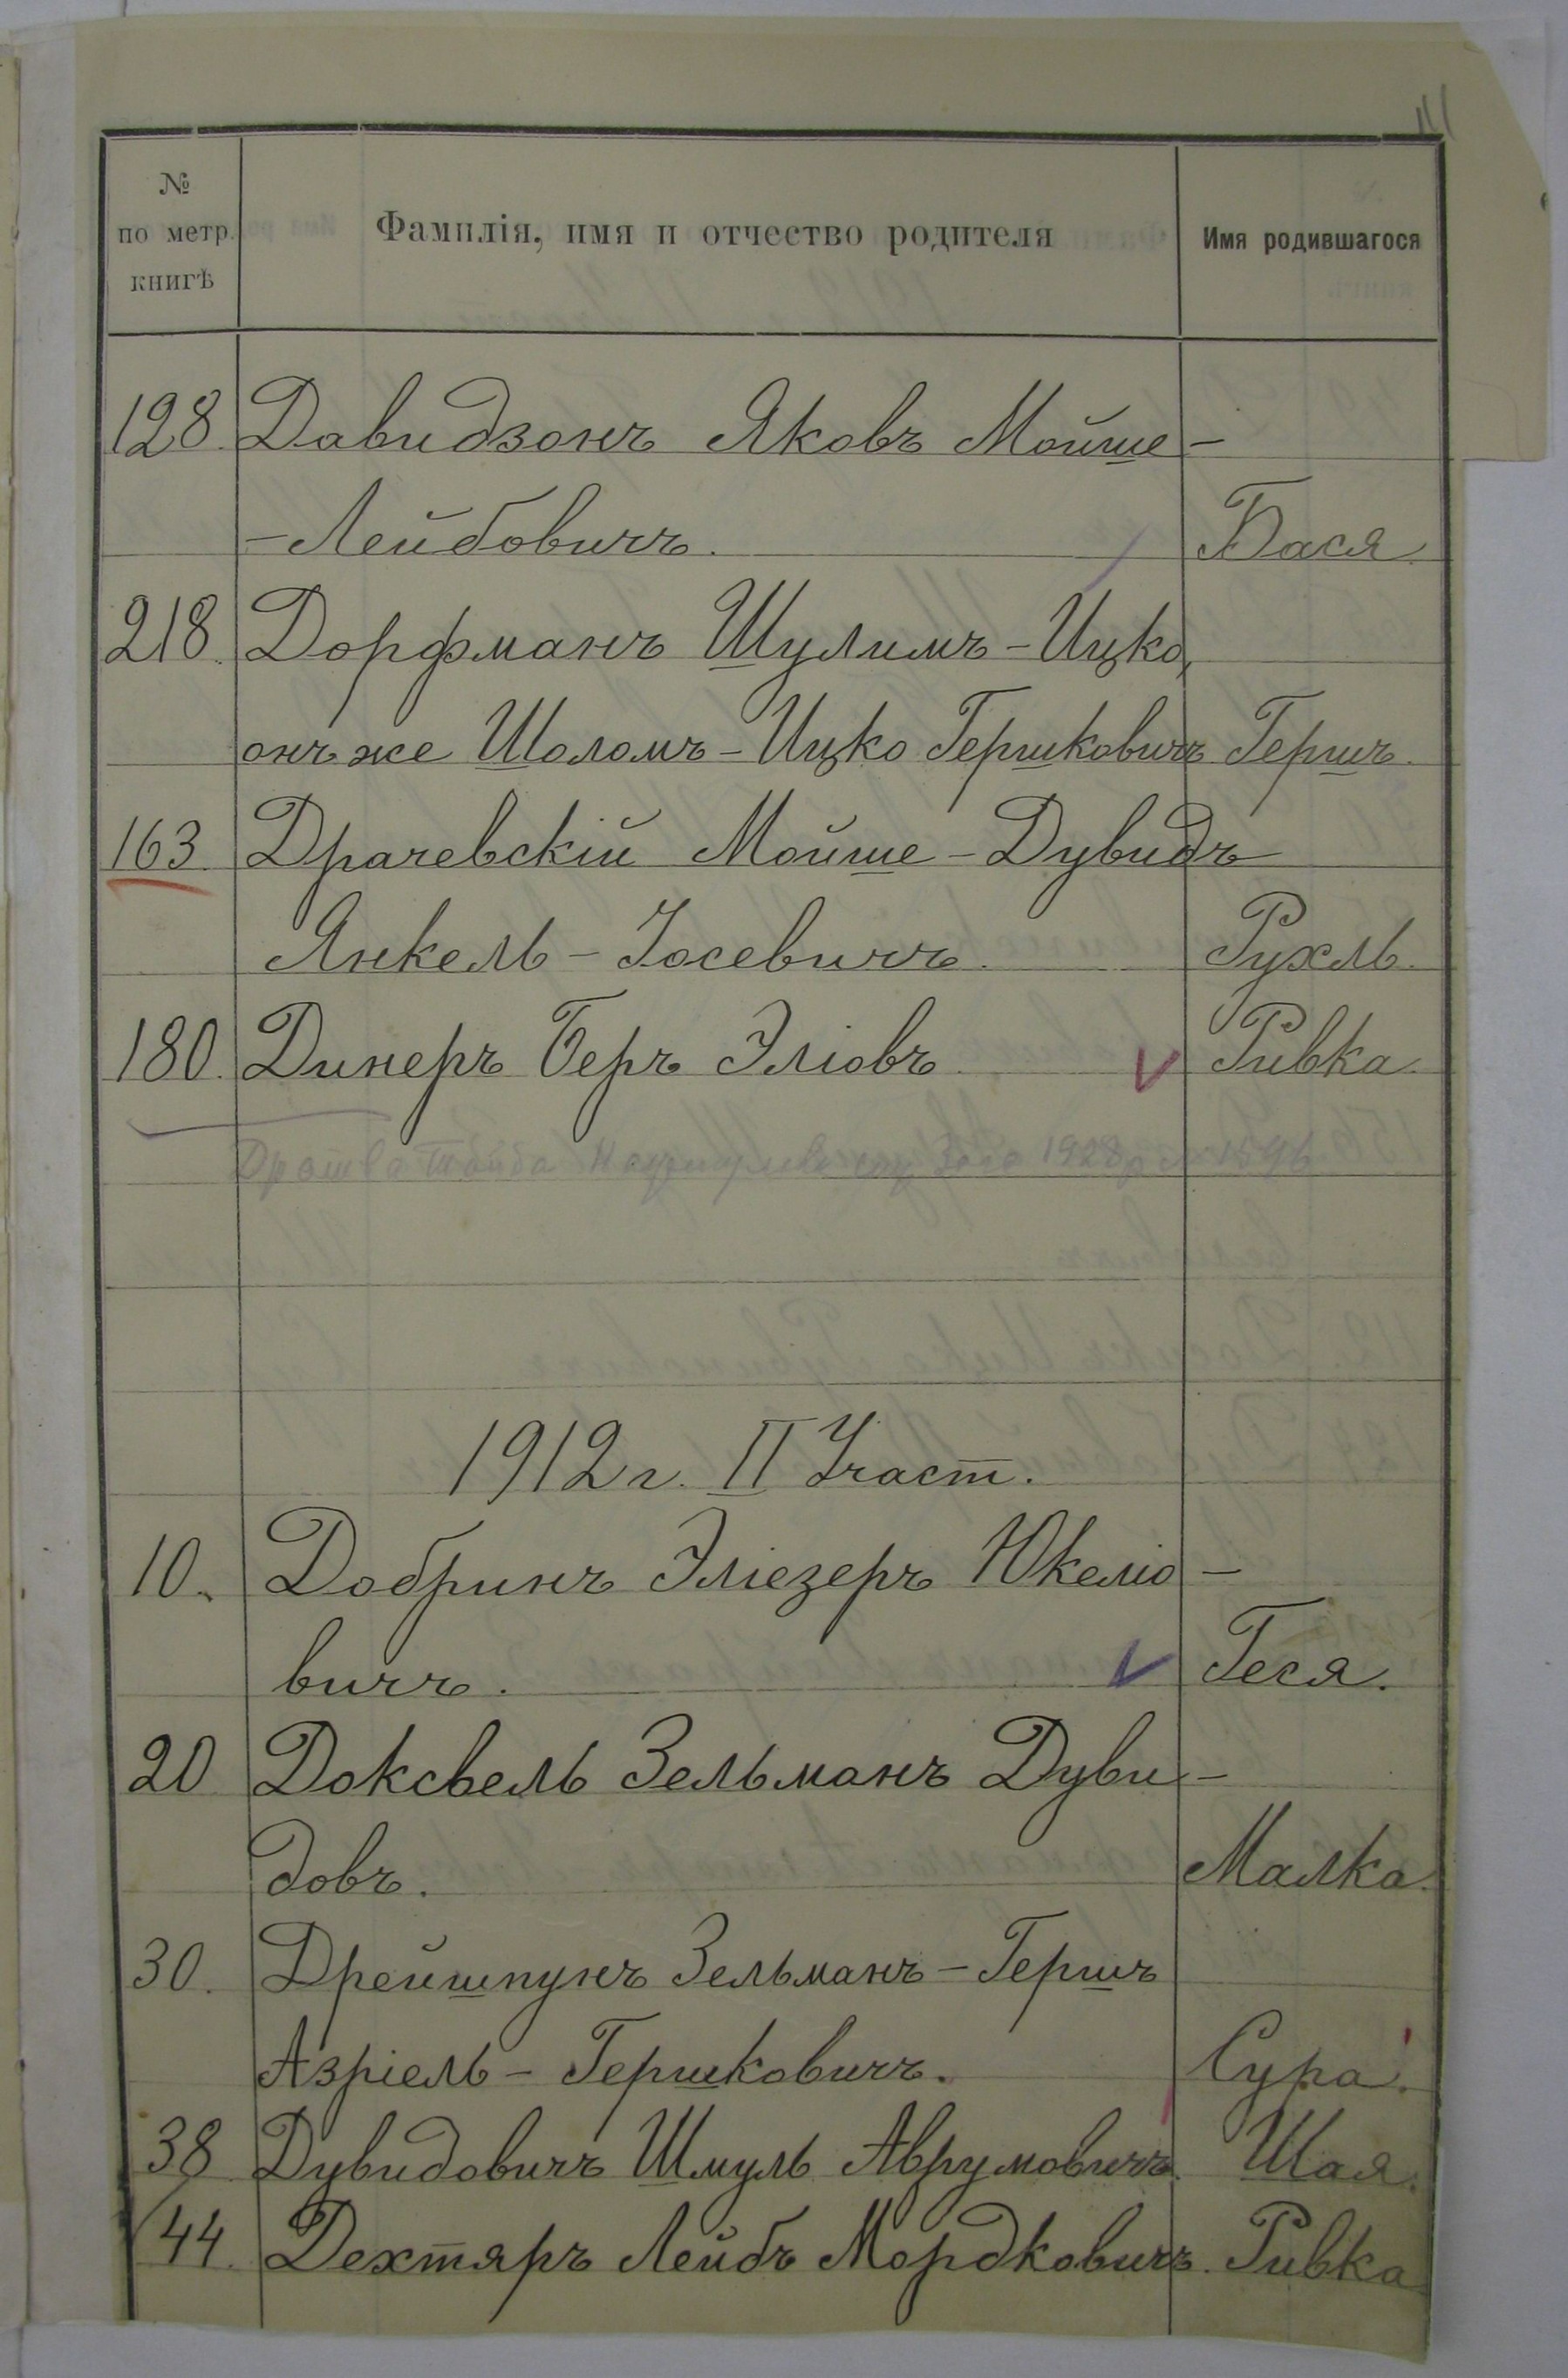 № по метр. книгѣ Фамилія, имя и отчество родителя Имя родившагося
128. Давидзонъ Яковъ Мойше-
-Лейбовичъ. Бася
218. Дорфманъ Шулимъ-Ицко,
онъ же Шоломъ-Ицко Гершковичъ Гершъ.
163. Драчевскій Мойше-Дувидъ
Янкель-Іосевичъ. Рухль.
180. Динеръ Беръ Эліовъ Ривка.
1928
1912 г. II Участ.
10. Добринъ Эліезеръ Юкеліо-
вичъ. Геся.
20 Доксвель Зельманъ Дуви-
довъ. Малка.
30. Дрейшпунъ Зельманъ-Гершъ
Азріель-Гершковичъ. Сура.
38 Дувидовичъ Шмуль Аврумовичъ. Шая.
44. Дехтяръ Лейбъ Мордковичъ. Ривка